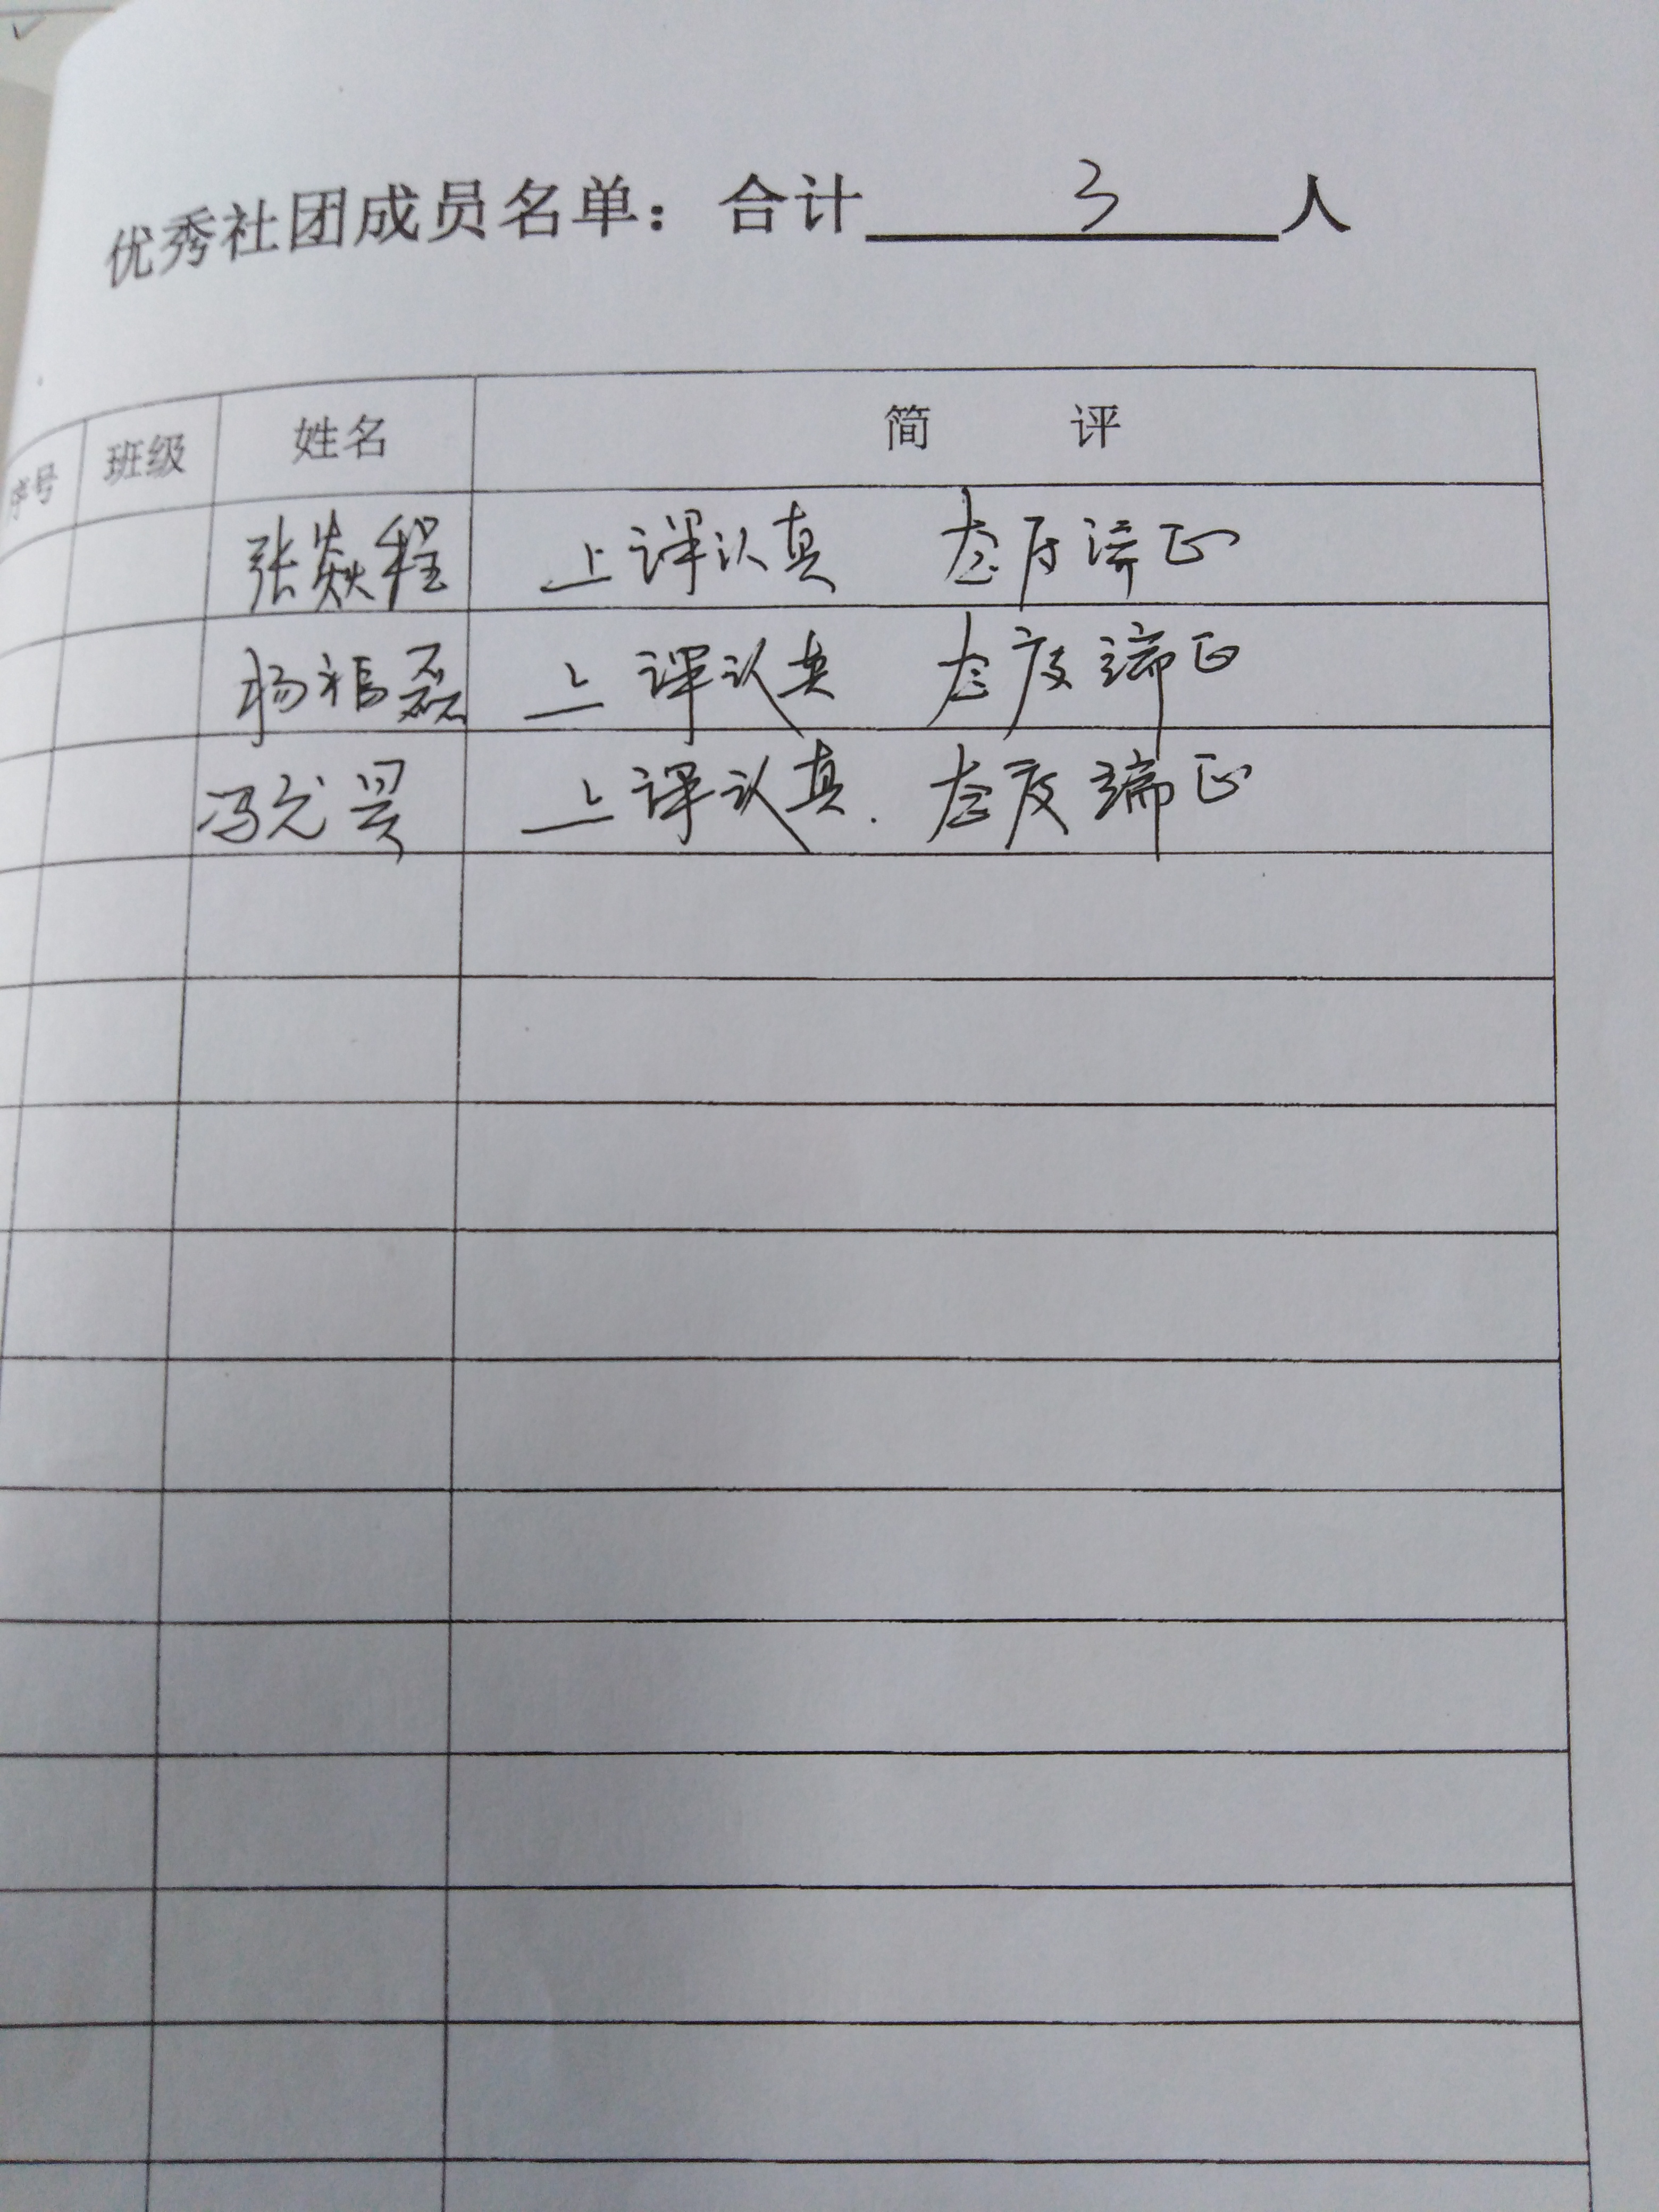 优秀社团成员名单：合计 3 人
序号 班级 姓名 简 评
张焱程 上课认真 态度端正
杨福磊 上课认真 态度端正
冯允昊 上课认真. 态度端正